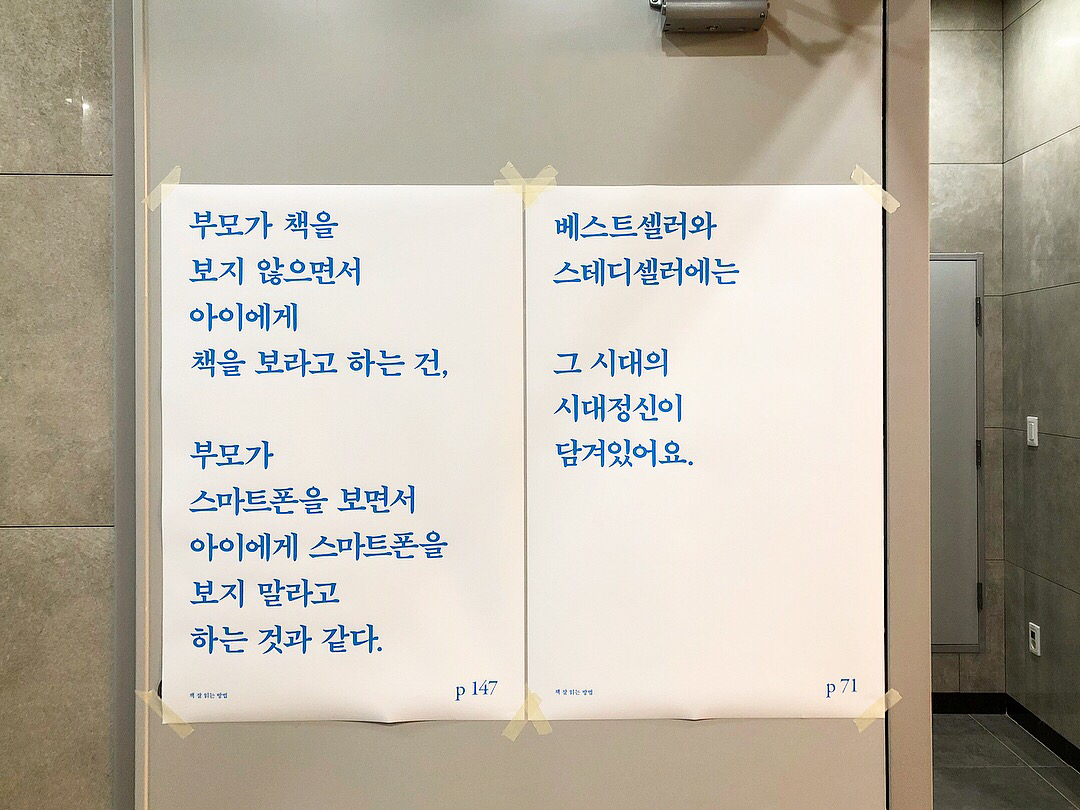 부모가 책을
보지 않으면서
아이에게
책을 보라고 하는 건,
부모가
스마트폰을 보면서
아이에게 스마트폰을
보지 말라고
하는 것과 같다.
책 잘 읽는 방법
p 147
베스트셀러와
스테디셀러에는
그 시대의
시대정신이
담겨있어요.
책 잘 읽는 방법
p 71